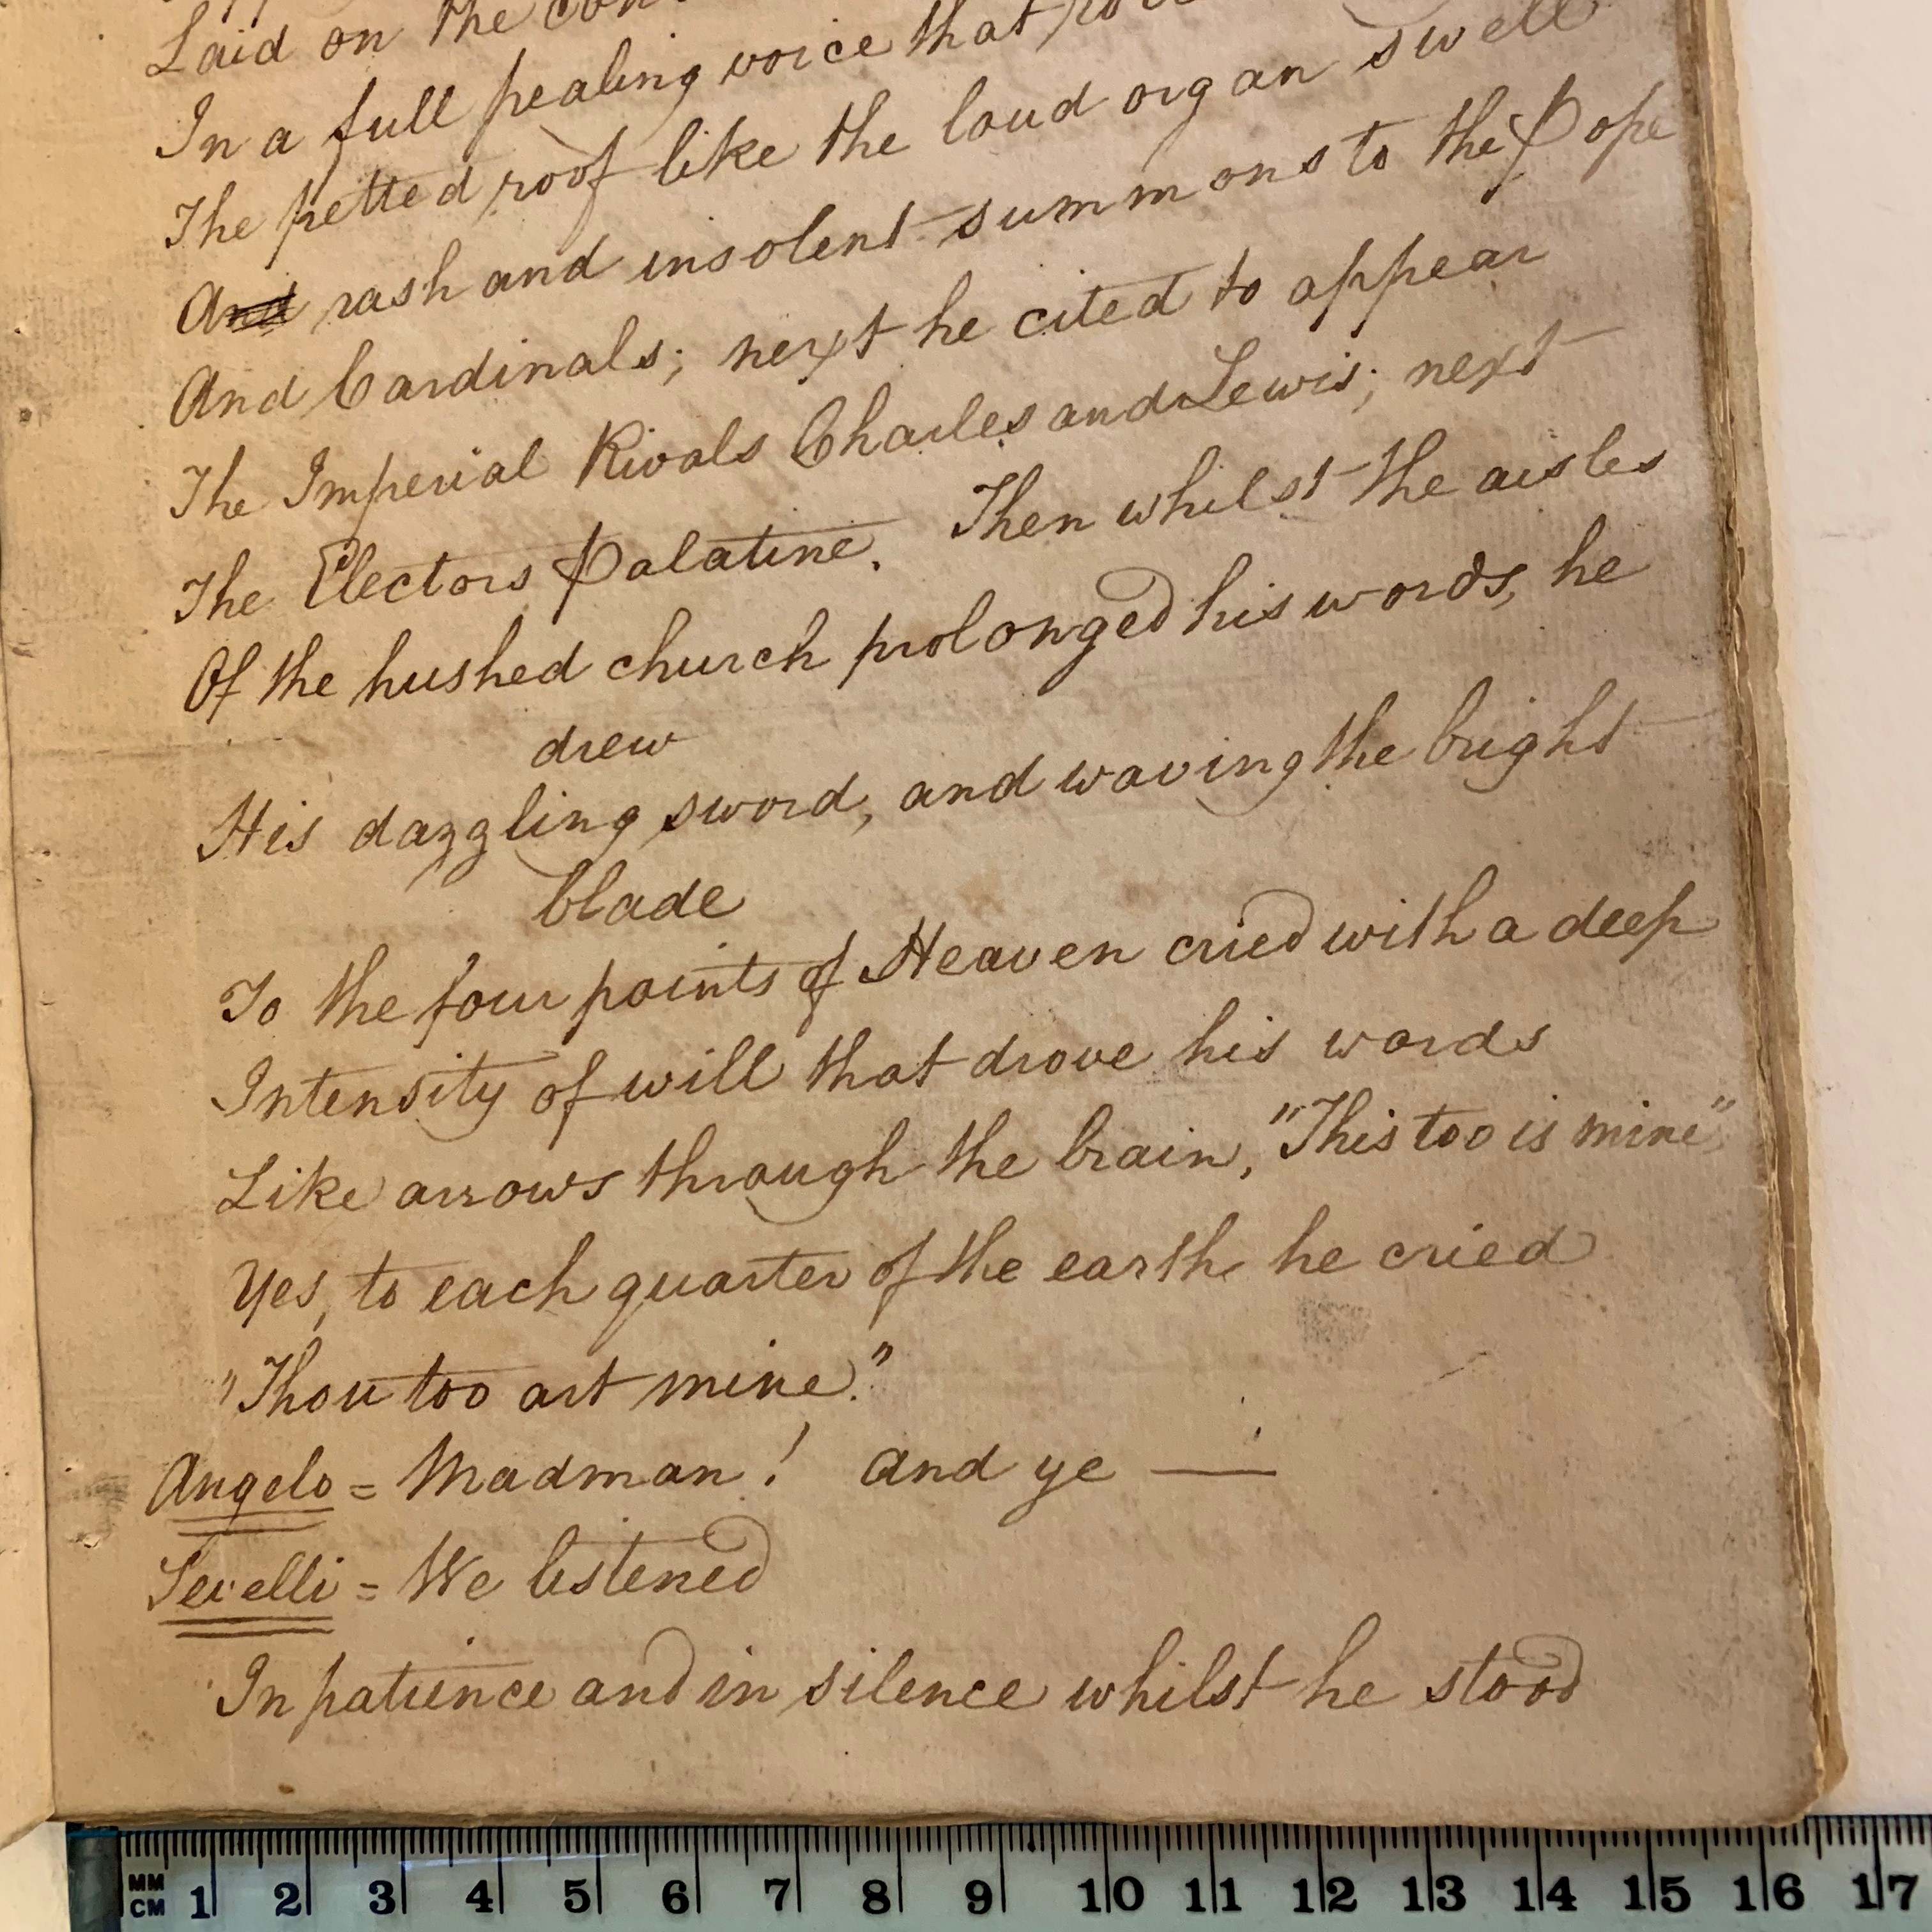 Laid on the
In a full pealing voice that
The fretted roof like the loud organ swell
A rash and insolent summons to the Pope
And Cardinals; next he cited to appear
The Imperial Rivals Charles and Lewis; next
The Electors Palatine. Then whilst the aisles
Of the hushed church prolonged his words, he
drew
His dazzling sword, and waving the bright
blade
To the four points of Heaven cried with a deep
Intensity of will that drove his words
Like arrows through the brain, "This too is mine",
Yes, to each quarter of the earth he cried
"Thou too art mine."
Angelo = Madman! And ye —
Savelli = We listened
In patience and in silence whilst he stood
MM
CM 1 2 3 4 5 6 7 8 9 10 11 12 13 14 15 16 17